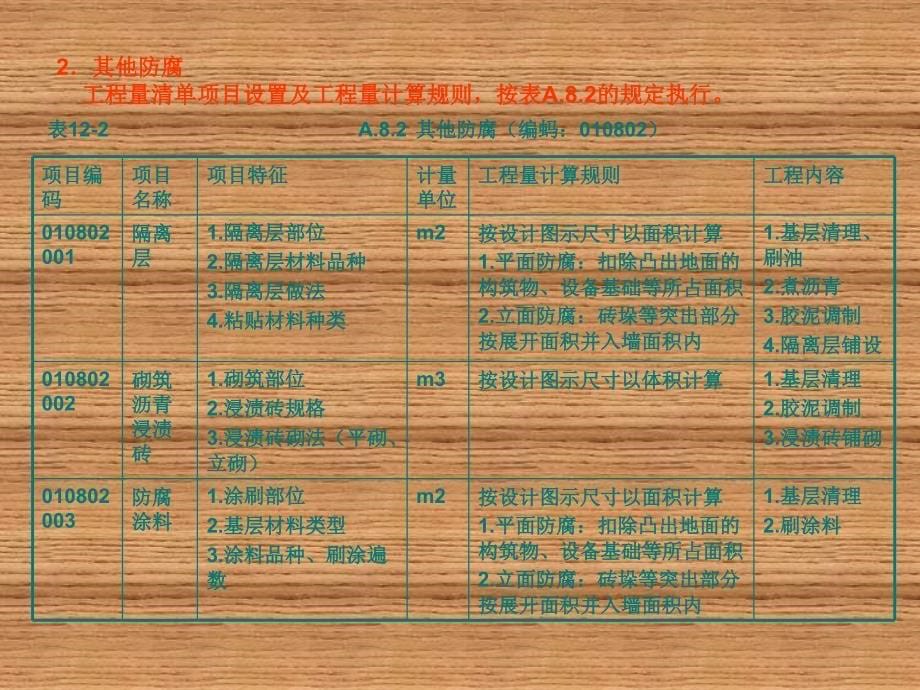 2．其他防腐
工程量清单项目设置及工程量计算规则，按表A.8.2的规定执行。
表12-2 A.8.2 其他防腐（编蚂：010802）
项目编
码
项目
名称
项目特征
计量
单位
工程量计算规则
工程内容
010802
001
隔离
层
1.隔离层部位
2.隔离层材料品种
3.隔离层做法
4.粘贴材料种类
m2
按设计图示尺寸以面积计算
1.平面防腐：扣除凸出地面的
构筑物、设备基础等所占面积
2.立面防腐：砖垛等突出部分
按展开面积并入墙面积内
1.基层清理、
刷油
2.煮沥青
3.胶泥调制
4.隔离层铺设
010802
002
砌筑
沥青
浸渍
砖
1.砌筑部位
2.浸渍砖规格
3.浸渍砖砌法（平砌、
立砌）
m3
按设计图示尺寸以体积计算
1.基层清理
2.胶泥调制
3.浸渍砖铺砌
010802
003
防腐
涂料
1.涂刷部位
2.基层材料类型
3.涂料品种、刷涂遍
数
m2
按设计图示尺寸以面积计算
1.平面防腐：扣除凸出地面的
构筑物、设备基础等所占面积
2.立面防腐：砖垛等突出部分
按展开面积并入墙面积内
1.基层清理
2.刷涂料